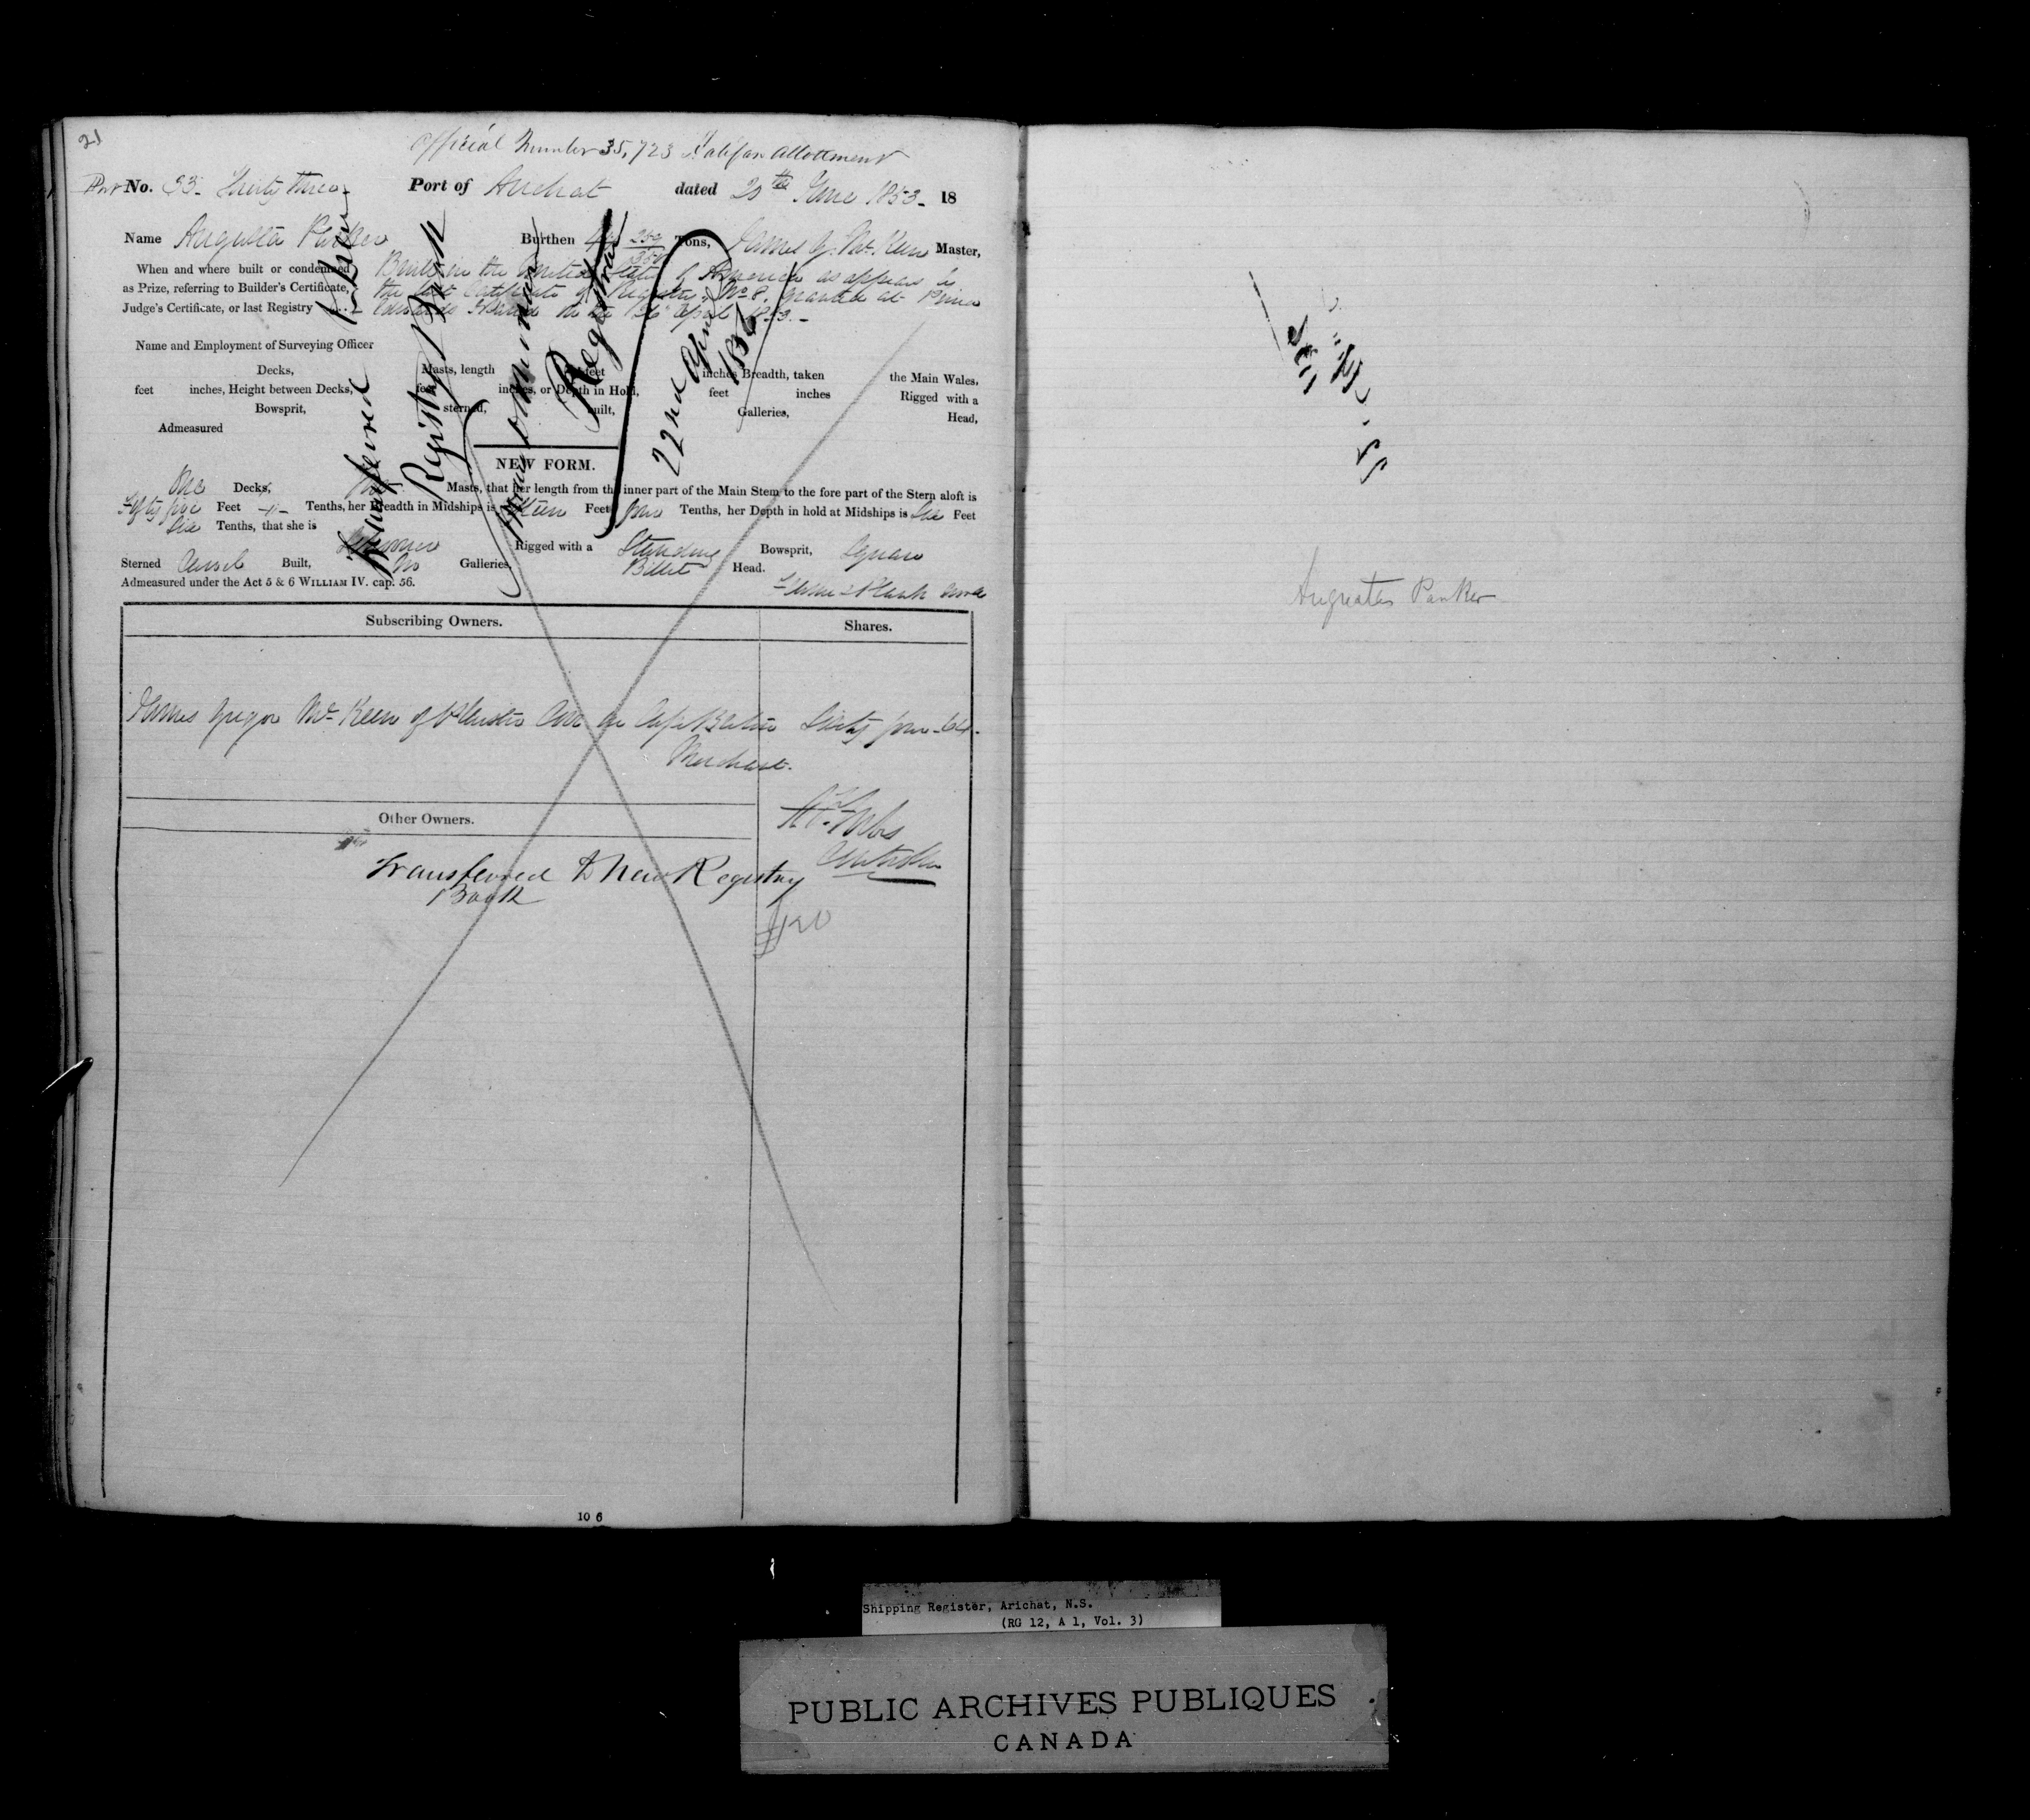 21
Official Number 35,723 Halifax Allotment
Port No. 33. Thirty three Port of Arichat dated 20th June 1853. 18
Name Augusta Parker Burthen Tons, James G. McKeen Master,
When and where built or condemned
as Prize, referring to Builder's Certificate,
Judge's Certificate, or last Registry
Built in the United States of America as appears by
the last Certificate of Registry No 8. granted at Prince
Edwards Island 1853.
Name and Employment of Surveying Officer
Decks, Masts, length feet inches Breadth, taken the Main Wales,
feet inches, Height between Decks, feet inches, or Depth in Hold, feet inches Rigged with a
Bowsprit, sterned, built, Galleries, Head,
Admeasured
Transferred to New
Registry Book
Registrar
22nd April
NEW FORM.
One Decks, Masts, that her length from the inner part of the Main Stem to the fore part of the Stern aloft is
Fifty five Feet -"- Tenths, her Breadth in Midships is Feet four Tenths, her Depth in hold at Midships is Six Feet
Six Tenths, that she is Schooner Rigged with a Standing Bowsprit, Square
Sterned Carvel Built, No Galleries, Billet Head.
Admeasured under the Act 5 & 6 WILLIAM IV. cap. 56. Frame & Plank Wood
Subscribing Owners. Shares.
James Gregor McKeen of Cape Breton Sixty four - 64.
Merchant.
Other Owners.
Transferred to New Registry
Book
Augusta Parker
10 6
Shipping Register, Arichat, N.S.
(RG 12, A 1, Vol. 3)
PUBLIC ARCHIVES PUBLIQUES
CANADA